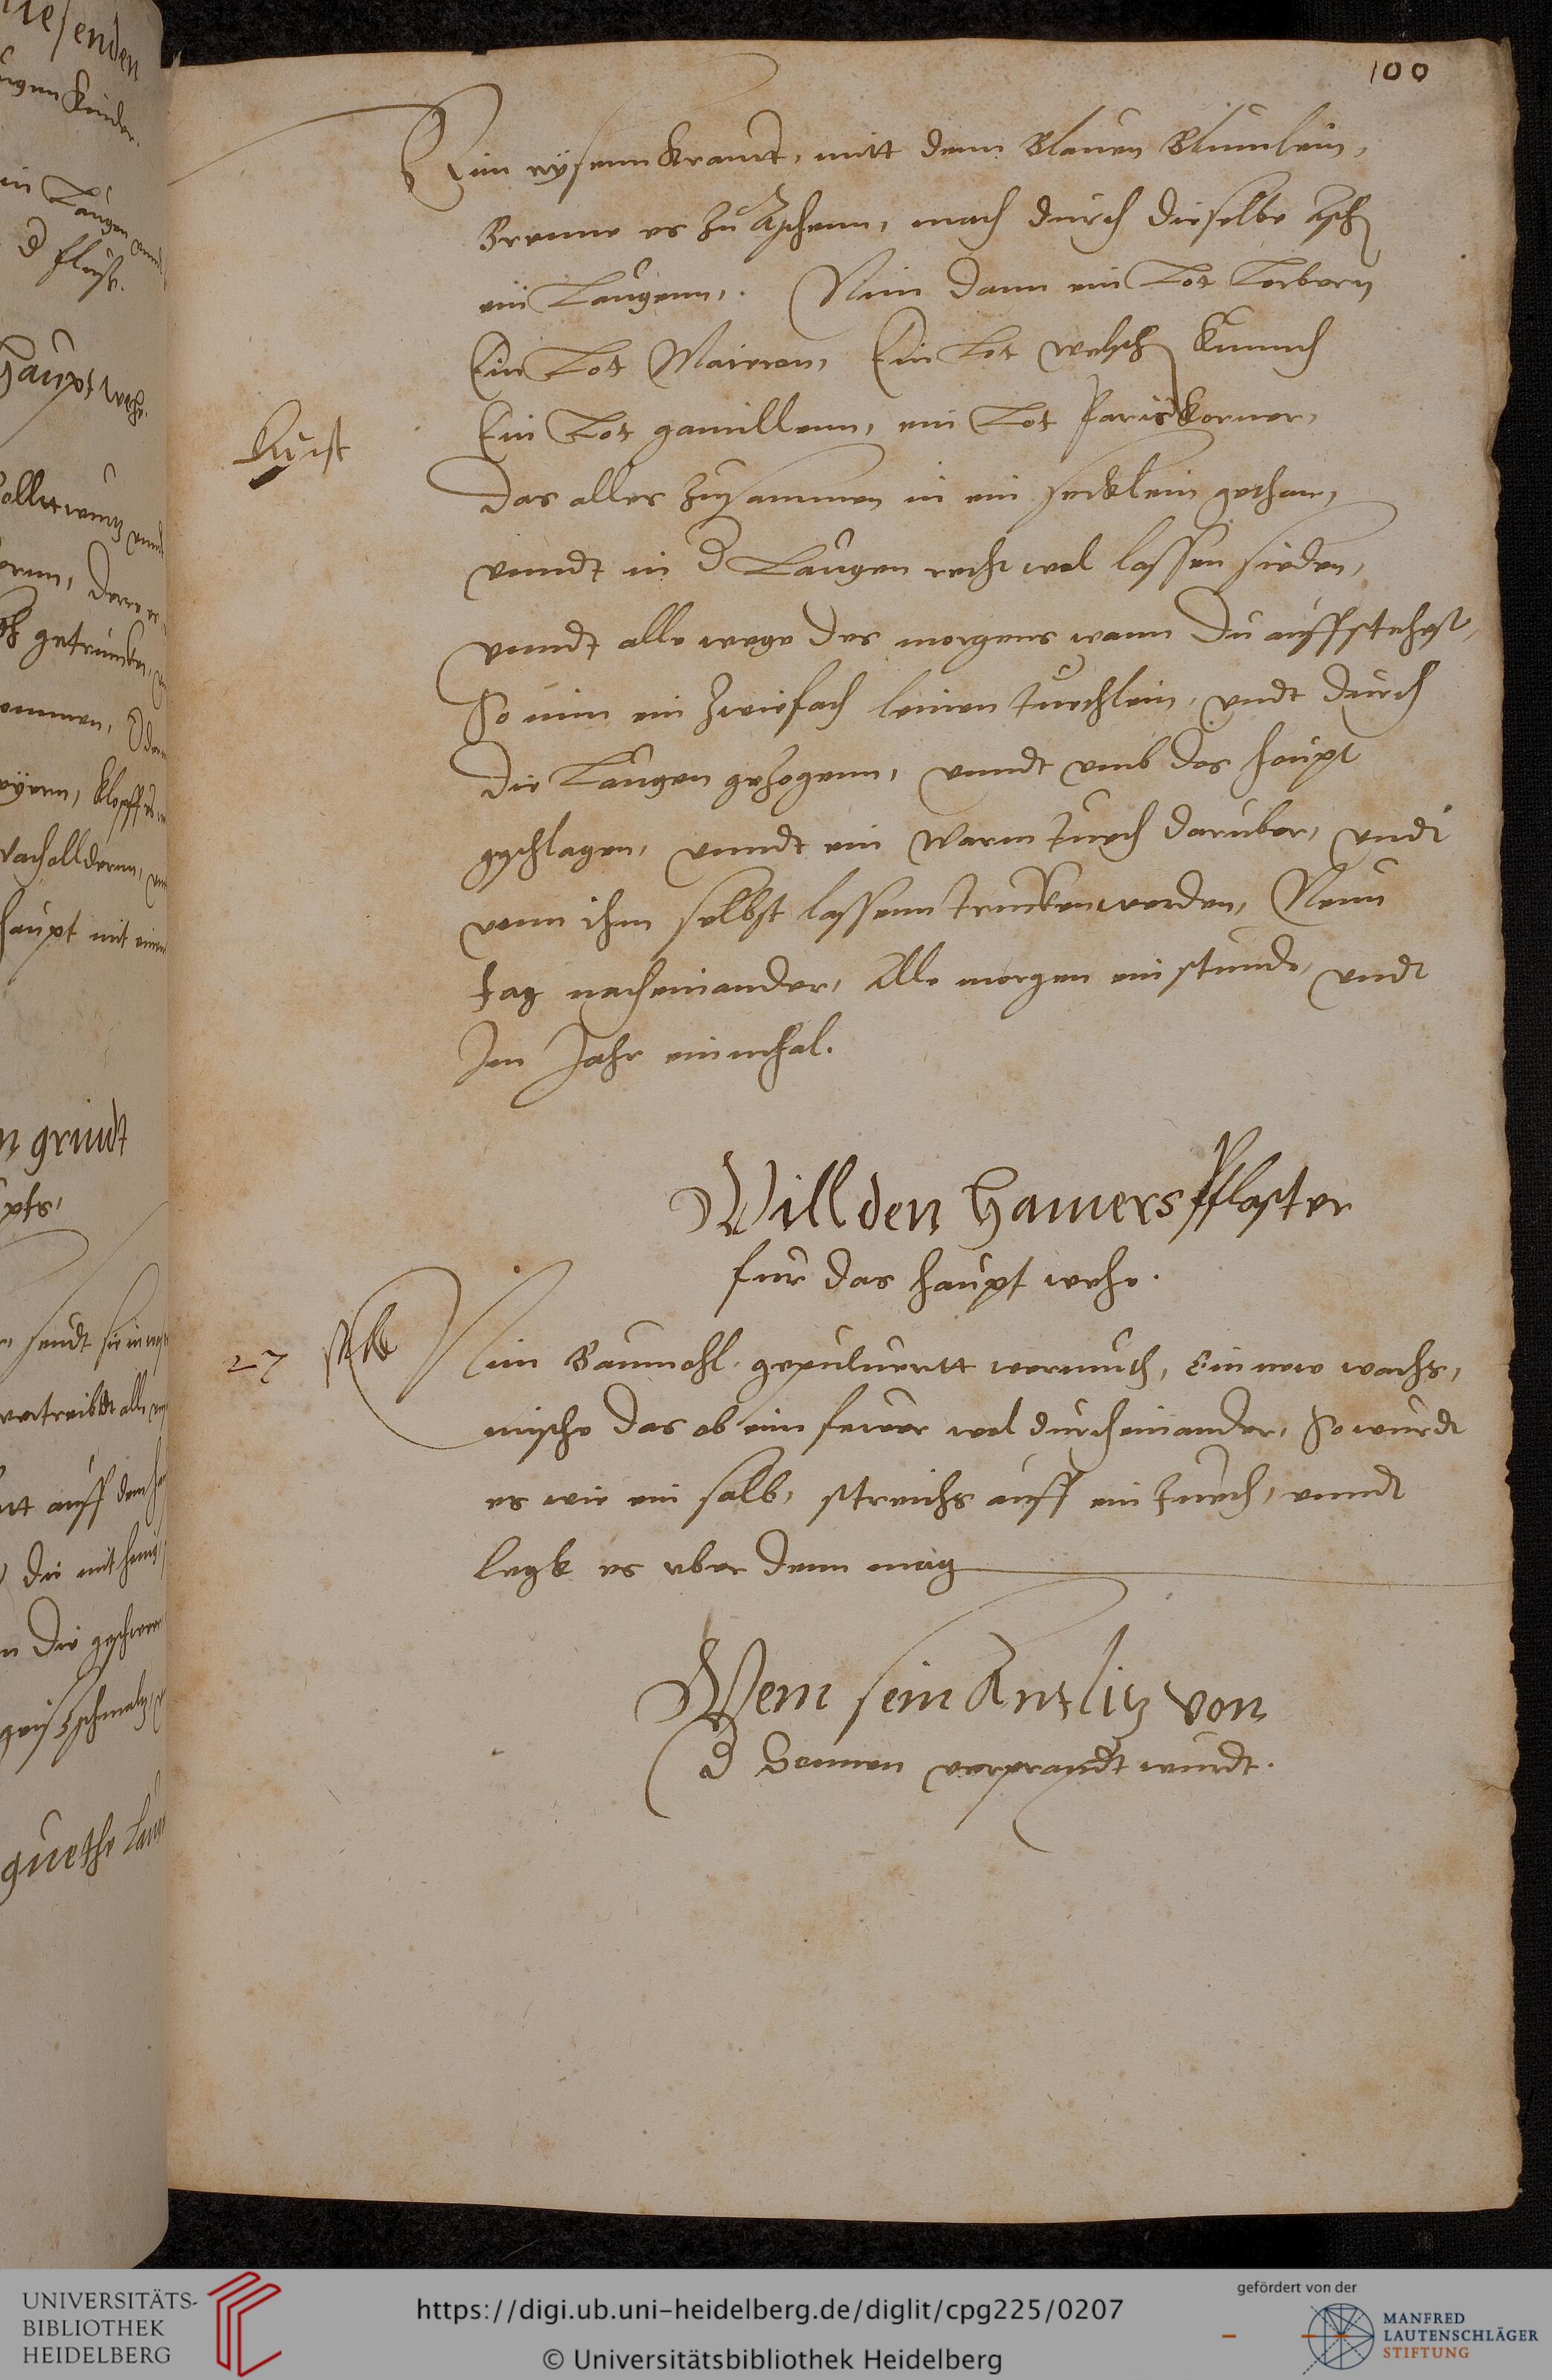 100
Nim eysennkraut, mitt denn Blauen Blumlein,
Brenne es zu Aschenn, mach durch dieselbe Asch
ein Laugenn, Nim dann ein Lot Lorbern
Ein Lot Maieron, Ein Lot welsch Kumich
Ein Lot gamillenn, ein Lot Pariskorner,
Das alles zusammen in ein secklein gethan,
vnndt in d Laugen recht wol lassen sieden,
vnndt alle wege des morgens wann du auffstehest,
So nim ein zwiefach leinen tuechlein, vndt durch
die Laugen gezogenn, vnndt vmb das haupt
geschlagen, vnndt ein warm tuech daruber, vndt
vonn ihm selbst lassenn trucken werden, Neun
tag nacheinander, Alle morgen ein stunde, vndt
Im Jahr ein mhal.
Willden hamers Pflaster
fur das haupt wehe.
27
Nim Baumohl, gepuluertt wermuth, Ein new wachs,
mische das ob eim fewer wol durcheinander, So wurdt
es wie ein salb, streichs auff ein tuech, vnndt
legk es vber denn mag
Wem sein Antlitz von
d Sonnen verprandt wurdt.
haupt wehe
haupt mit einem
grindt
guethe
UNIVERSITÄTS-
BIBLIOTHEK
HEIDELBERG
https://digi.ub.uni-heidelberg.de/diglit/cpg225/0207
© Universitätsbibliothek Heidelberg
gefördert von der
MANFRED
LAUTENSCHLÄGER
STIFTUNG